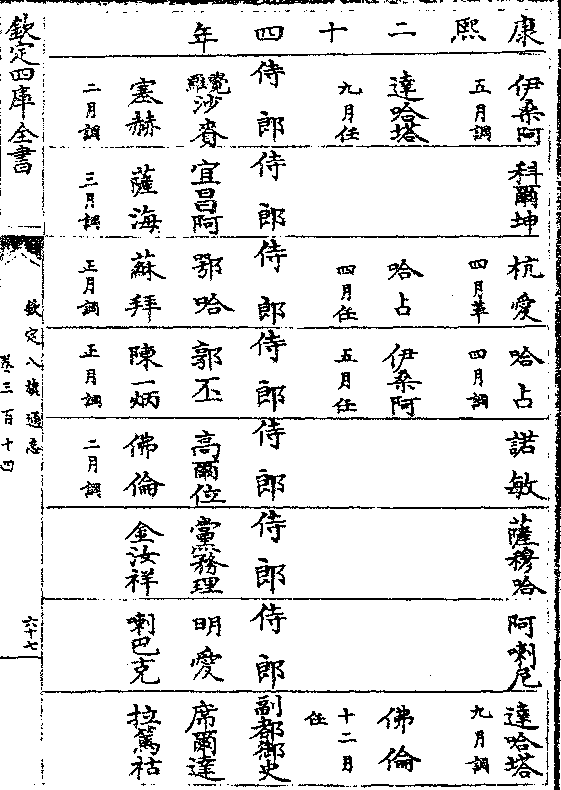 康熙二十四年
伊桑阿 科爾坤 杭愛 哈占 諾敏 薩穆哈 阿喇尼 達哈塔
五月調 四月革 四月調 九月調
達哈塔 哈占 伊桑阿 佛倫
九月任 四月任 五月任 十二月任
侍郎 侍郎 侍郎 侍郎 侍郎 侍郎 侍郎 副都御史
覺羅沙賚 宜昌阿 鄂哈 郭丕 高爾位 黨務理 明愛 席爾達
塞赫 薩海 蘇拜 陳一炳 佛倫 金汝祥 喇巴克 拉篤祜
二月調 三月調 正月調 正月調 二月調
欽定四庫全書
欽定八旗通志
卷三百十四
六十七